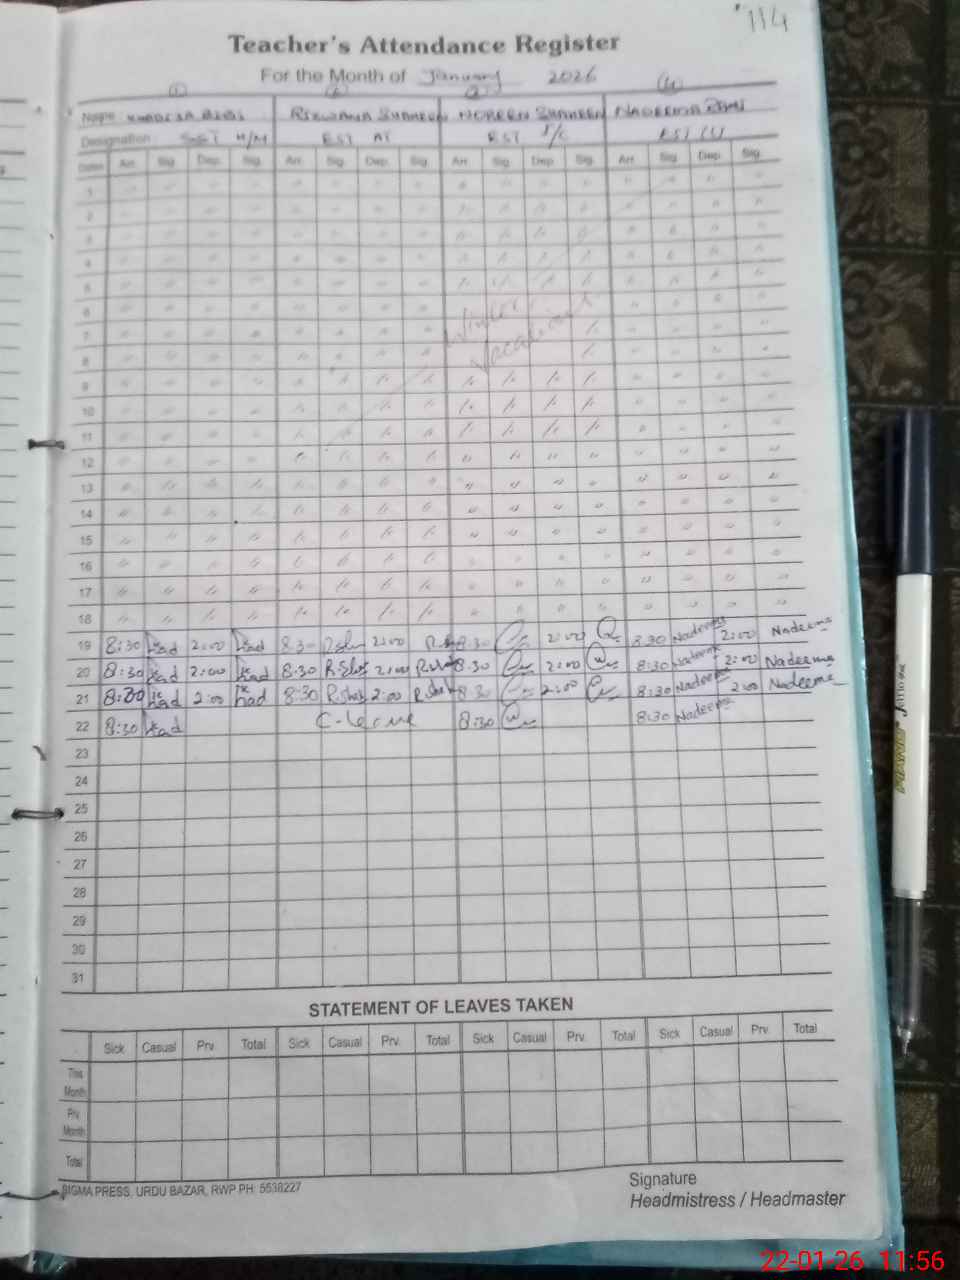 114
Teacher's Attendance Register
For the Month of January 2026
1 2 3 4
Name KHADIJA BIBI RIZWANA SHAHEEN NOREEN SHAHEEN NADEEMA BIBI
Designation SST H/M EST AT EST I/C EST
Date Arr. Sig. Dep. Sig. Arr. Sig. Dep. Sig. Arr. Sig. Dep. Sig. Arr. Sig. Dep. Sig.
1
2
3
4
5
6 Winter
7 Vacations
8
9
10
11
12
13
14
15
16
17
18
19 8:30 2:00 8:30 2:00 8:30 2:00 8:30 Nadeema 2:00 Nadeema
20 8:30 2:00 8:30 2:00 8:30 2:00 8:30 Nadeema 2:00 Nadeema
21 8:30 2:00 8:30 2:00 8:30 2:00 8:30 Nadeema 2:00 Nadeema
22 8:30 C-leave 8:30 8:30 Nadeema
23
24
25
26
27
28
29
30
31
STATEMENT OF LEAVES TAKEN
Sick Casual Prv. Total Sick Casual Prv. Total Sick Casual Prv. Total Sick Casual Prv. Total
This
Month
Prv.
Month
Total
SIGMA PRESS, URDU BAZAR, RWP PH: 5538227
Signature
Headmistress / Headmaster
PIANO
22-01-26 11:56